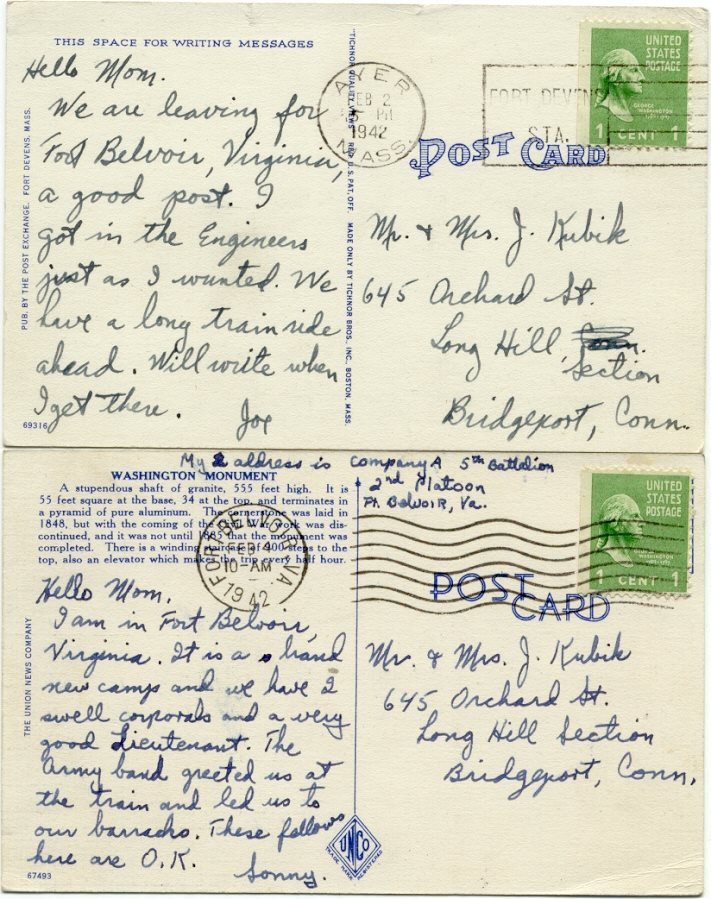 THIS SPACE FOR WRITING MESSAGES
Hello Mom.
We are leaving for
Fort Belvoir, Virginia,
a good post. I
got in the Engineers
just as I wanted. We
have a long train ride
ahead. Will write when
I get there. Joe
69316
PUB. BY THE POST EXCHANGE, FORT DEVENS, MASS.
"TICHNOR QUALITY VIEWS" REG. U.S. PAT. OFF. MADE ONLY BY TICHNOR BROS. INC., BOSTON, MASS.
AYER
FEB 2
PM
1942
MASS.
FORT DEVENS
STA.
UNITED
STATES
POSTAGE
GEORGE
WASHINGTON
1 CENT 1
POST CARD
Mr. & Mrs. J. Kubik
645 Orchard St.
Long Hill, Conn.
Section
Bridgeport, Conn.
My address is Company A 5th Battalion
2nd Platoon
Ft. Belvoir, Va.
WASHINGTON MONUMENT
A stupendous shaft of granite, 555 feet high. It is
55 feet square at the base, 34 at the top, and terminates in
a pyramid of pure aluminum. The cornerstone was laid in
1848, but with the coming of the Civil War work was dis-
continued, and it was not until 1885 that the monument was
completed. There is a winding staircase of 900 steps to the
top, also an elevator which makes the trip every half hour.
FORT BELVOIR, VA.
FEB 4
10-AM
1942
Hello Mom.
I am in Fort Belvoir,
Virginia. It is a brand
new camp and we have 2
swell corporals and a very
good Lieutenant. The
Army band greeted us at
the train and led us to
our barracks. These fellows
here are O.K. Sonny.
67493
THE UNION NEWS COMPANY
UNITED
STATES
POSTAGE
GEORGE
WASHINGTON
1 CENT 1
POST
CARD
Mr. & Mrs. J. Kubik
645 Orchard St.
Long Hill Section
Bridgeport, Conn.
UNCO
TRADE MARK
REGISTERED